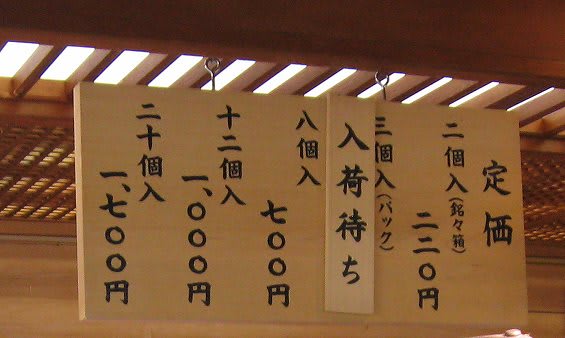 定価
二個入(銘々箱)
二二〇円
三個入(パック)
入荷待ち
八個入
七〇〇円
十二個入
一、〇〇〇円
二十個入
一、七〇〇円